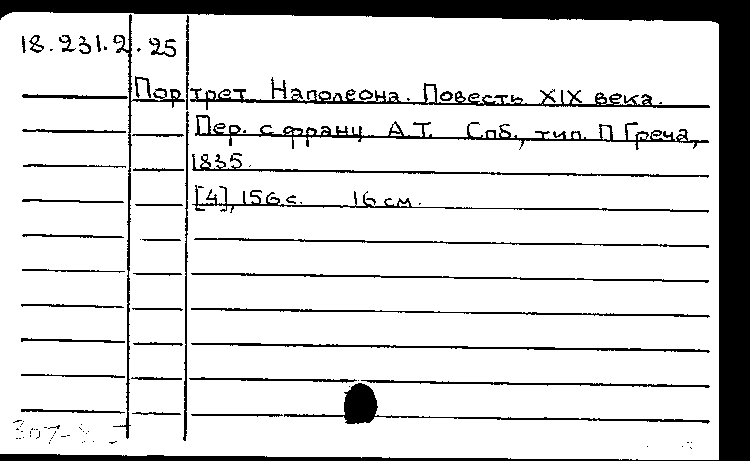 18.231.2.25
Портрет Наполеона. Повесть XIX века.
Пер. с франц. А.Т. Спб., тип. П Греча,
1835.
[4], 156 с. 16 см.